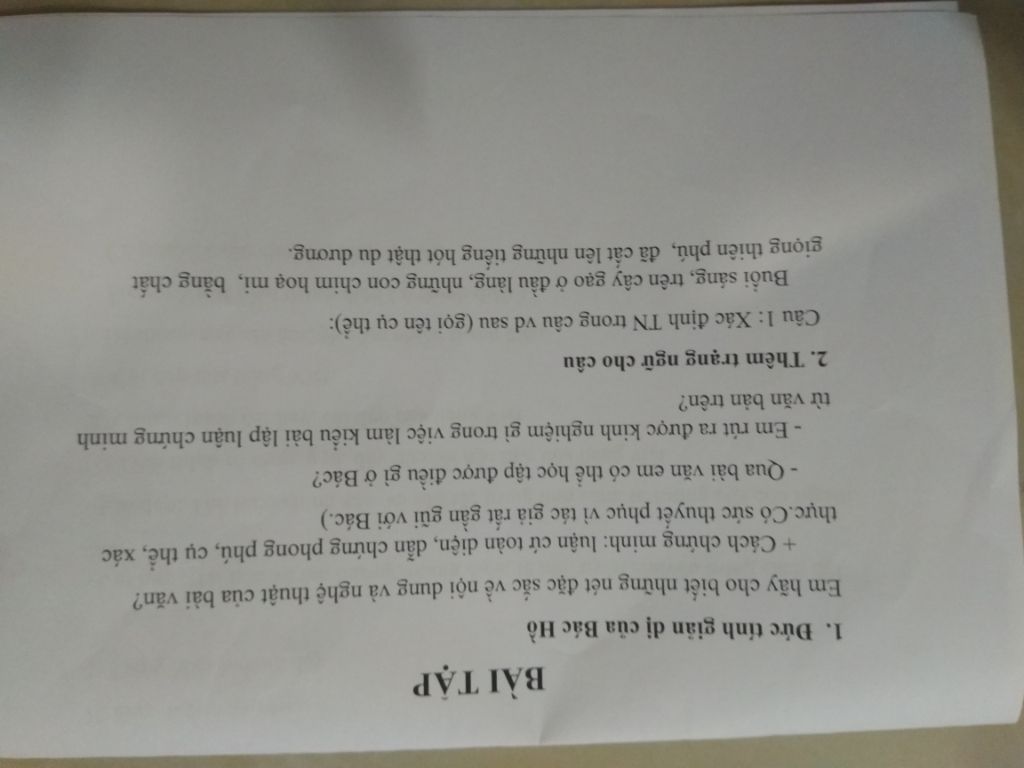 BÀI TẬP
1. Đức tính giản dị của Bác Hồ
Em hãy cho biết những nét đặc sắc về nội dung và nghệ thuật của bài văn?
+ Cách chứng minh: luận cứ toàn diện, dẫn chứng phong phú, cụ thể, xác
thực.Có sức thuyết phục vì tác giả rất gần gũi với Bác.)
- Qua bài văn em có thể học tập được điều gì ở Bác?
- Em rút ra được kinh nghiệm gì trong việc làm kiểu bài lập luận chứng minh
từ văn bản trên?
2. Thêm trạng ngữ cho câu
Câu 1: Xác định TN trong câu vd sau (gọi tên cụ thể):
Buổi sáng, trên cây gạo ở đầu làng, những con chim hoạ mi, bằng chất
giọng thiên phú, đã cất lên những tiếng hót thật du dương.